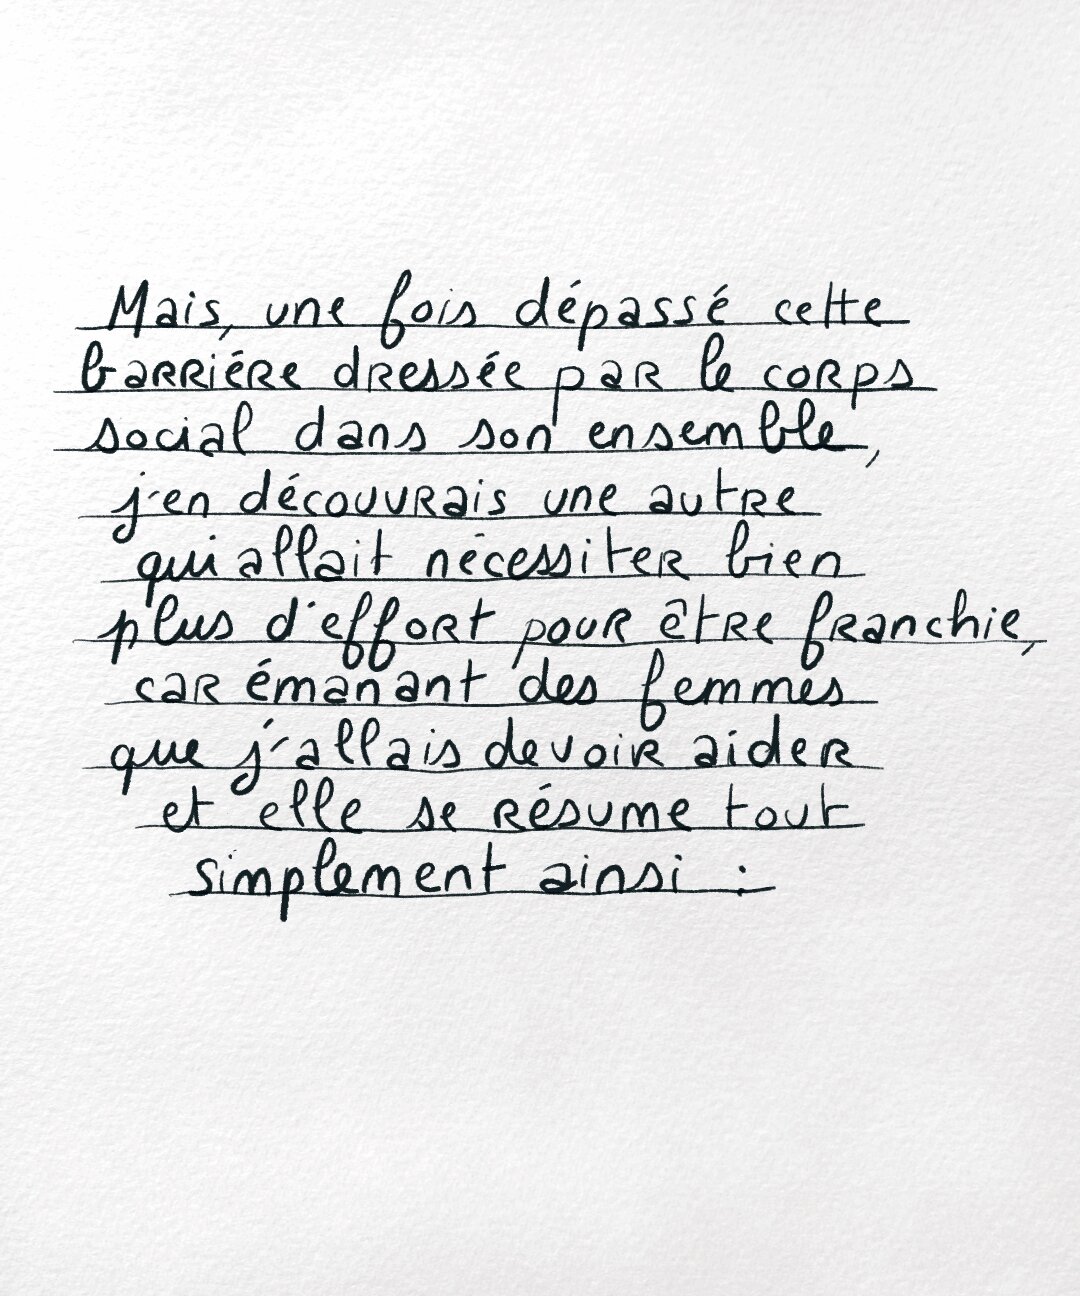 Mais, une fois dépassé cette
barriére dressée par le corps
social dans son ensemble,
j'en découvrais une autre
qui allait nécessiter bien
plus d'effort pour être franchie,
car émanant des femmes
que j'allais devoir aider
et elle se résume tout
simplement ainsi :